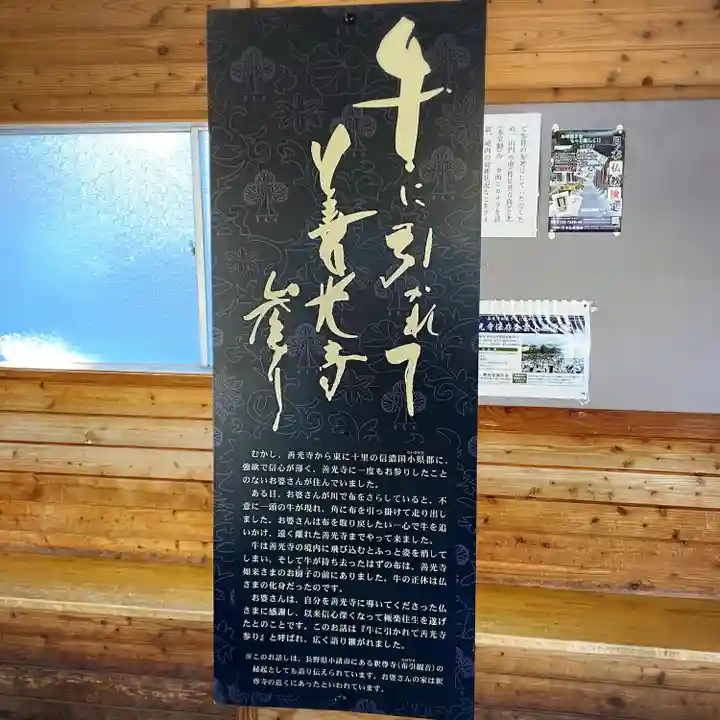 牛に引かれて
善光寺
参り
むかし、善光寺から東に十里の信濃国小県郡に、
強欲で信心が薄く、善光寺に一度もお参りしたこと
のないお婆さんが住んでいました。
ある日、お婆さんが川で布をさらしていると、不
意に一頭の牛が現れ、角に布を引っ掛けて走り出し
ました。お婆さんは布を取り戻したい一心で牛を追
いかけ、遠く離れた善光寺までやって来ました。
牛は善光寺の境内に飛び込むとふっと姿を消して
しまい、そして牛が持ち去ったはずの布は、善光寺
如来さまのお厨子の前にありました。牛の正体は仏
さまの化身だったのです。
お婆さんは、自分を善光寺に導いてくださった仏
さまに感謝し、以来信心深くなって極楽往生を遂げ
たとのことです。このお話は『牛に引かれて善光寺
参り』と呼ばれ、広く語り継がれました。
※このお話しは、長野県小諸市にある釈尊寺（布引観音）の
縁起としても語り伝えられています。お婆さんの家は釈
尊寺の近くにあったといわれています。
日本仏教検定